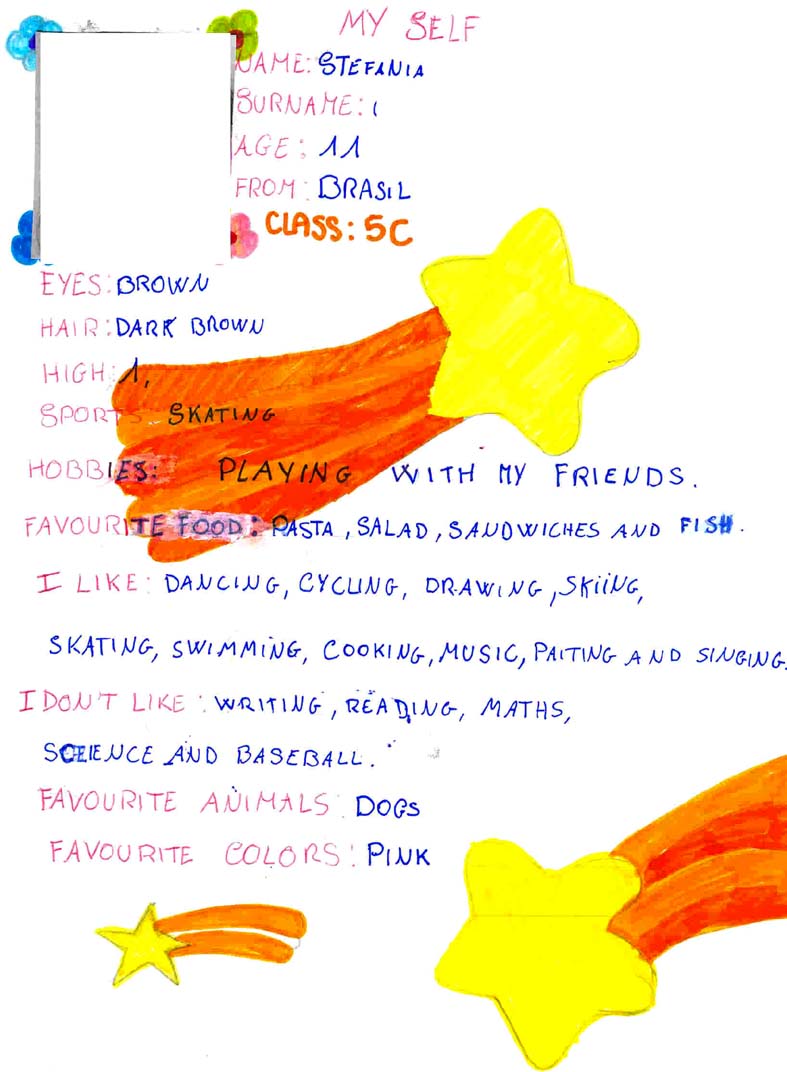 MY SELF
NAME: STEFANIA
SURNAME:
AGE: 11
FROM: BRASIL
CLASS: 5C
EYES: BROWN
HAIR: DARK BROWN
HIGH: 1,
SPORTS SKATING
HOBBIES: PLAYING WITH MY FRIENDS.
FAVOURITE FOOD: PASTA, SALAD, SANDWICHES AND FISH.
I LIKE: DANCING, CYCLING, DRAWING, SKIING,
SKATING, SWIMMING, COOKING, MUSIC, PAITING AND SINGING.
I DON'T LIKE: WRITING, READING, MATHS,
SCIENCE AND BASEBALL.
FAVOURITE ANIMALS: DOGS
FAVOURITE COLORS: PINK